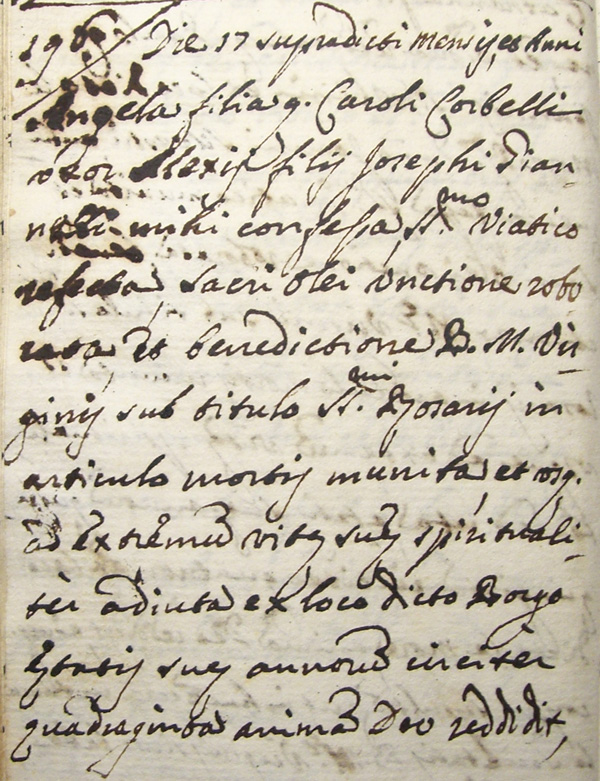 196 Die 17 supradicti Mensis, et Anni
Angela filia q. Caroli Corbelli
uxor Alexij filij Josephi Dian-
nelli mihi confessa, SS.mo Viatico
refecta, Sacri Olei Unctione robo
rata, Et benedictione B. M. Vir-
ginis sub titulo SS.mi Rosarij in
articulo mortis munita, et usq.
ad Extremũ vitę suę spirituali-
ter adiuta ex loco dicto Borgo
Ętatis suę annorũ circiter
quadraginta animã Deo reddidit,